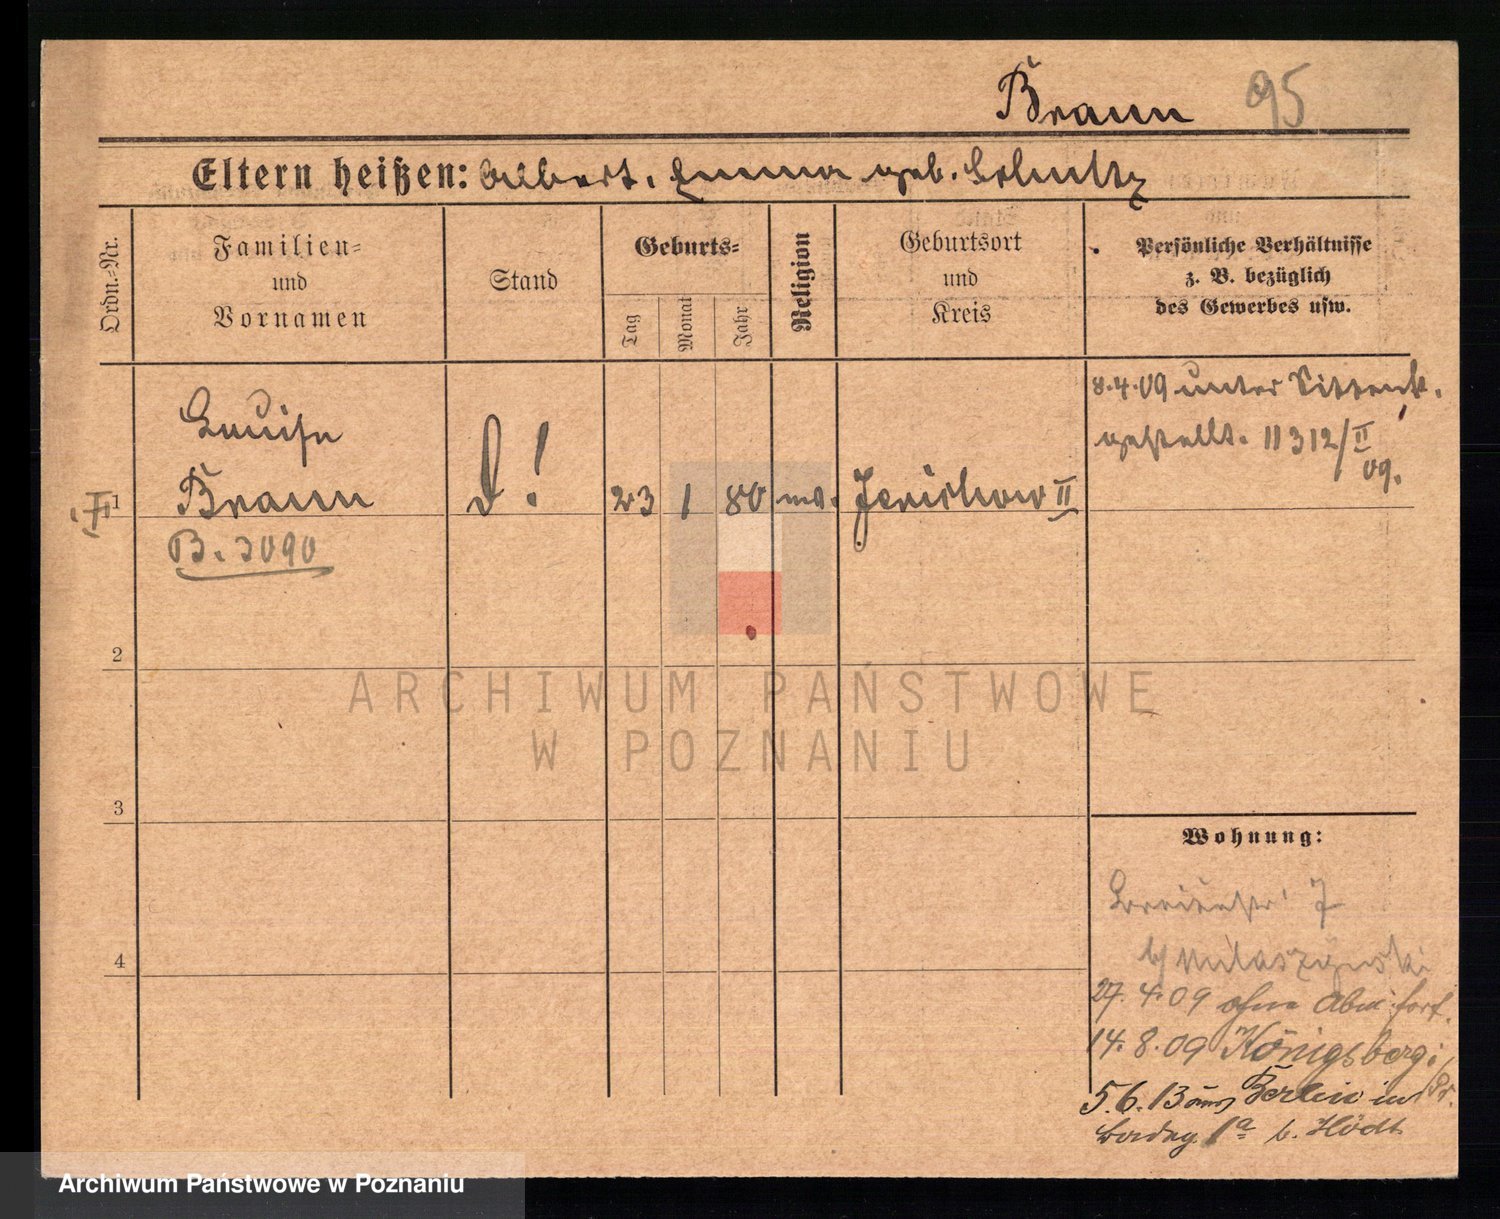 Braun 95
Eltern heißen: Albert. Emma geb. Schultz
Ordn.-Nr.
Familien-
und
Vornamen
Stand
Geburts-
Tag
Monat
Jahr
Religion
Geburtsort
und
Kreis
Persönliche Verhältnisse
z. B. bezüglich
des Gewerbes usw.
8.4.09 unter Sittenk.
gestellt. 11312/II
09.
Louise
1 Braun D! 23 1 80 Jerichow II
B. 3090
2
3
4
ARCHIWUM PAŃSTWOWE
W POZNANIU
Wohnung:
7
27.4.09 ohne Abm. fort.
14.8.09 Königsberg i/Pr.
5.6.13 aus Berlin in
1a b. Hödt
Archiwum Państwowe w Poznaniu